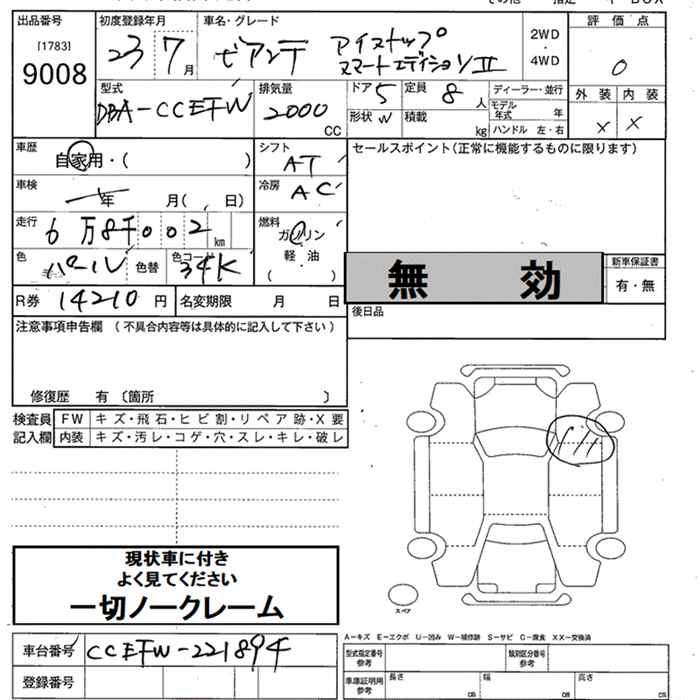 出品番号 初度登録年月 車名・グレード 2WD・4WD 評価点
[1783]
9008
23 7月 ビアンテ アイストップ スマートエディションⅡ
0
型式 排気量 ドア 5 定員 8人 ディーラー・並行 外装 内装
DBA-CCEFW 2000 CC 形状 W 積載 kg モデル年式 年 ハンドル 左・右 × ×
車歴 シフト セールスポイント(正常に機能するものに限ります)
自家用・( ) AT
車検 年 月( 日) 冷房 AC
走行 6万8千002km 燃料 ガソリン
軽油
( )
色 パール 色替 色コード 34K
無効 新車保証書
有・無
R券 14210円 名変期限 月 日
後日品
注意事項申告欄 (不具合内容等は具体的に記入して下さい)
修復歴 有 〔箇所 〕
検査員 FW キズ・飛石・ヒビ割・リペア跡・X要
記入欄 内装 キズ・汚レ・コゲ・穴・スレ・キレ・破レ
現状車に付き
よく見てください
一切ノークレーム
スペア
A－キズ E－エクボ U－凹み W－補修跡 S－サビ C－腐食 XX－交換済
車台番号 CCEFW-221894
登録番号
型式指定番号 参考 類別区分番号 参考
車庫証明用 参考 長さ cm 幅 cm 高さ cm